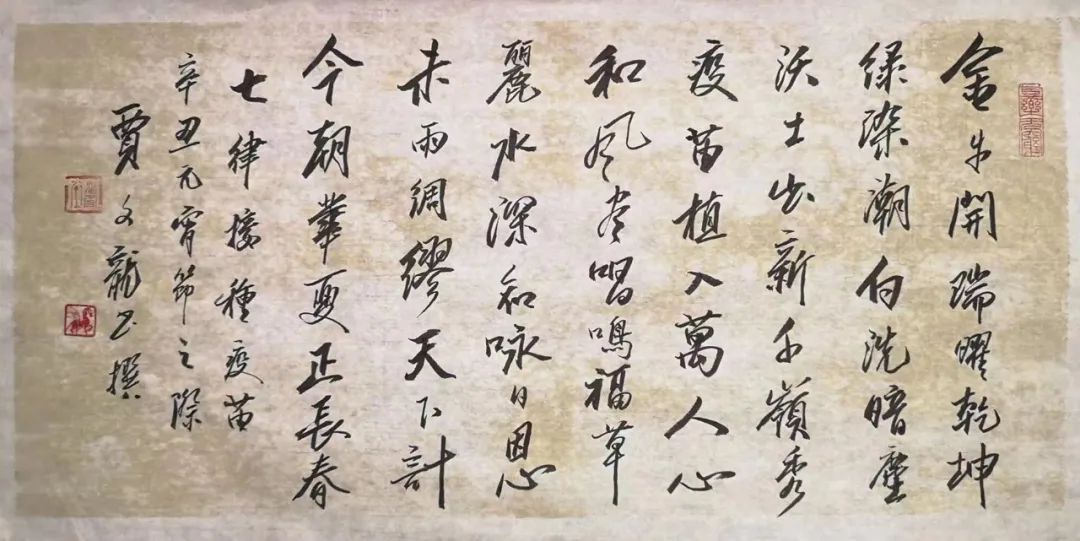 金牛開瑞曜乾坤
绿染潮白洗暗塵
沃土出新千嶺秀
疫苗植入萬人心
和風尽唱鳴福草
麗水深和咏日恩
未雨綢繆天下計
今朝華夏正長春
七律接種疫苗
辛丑元宵節之際
賈文龍书撰